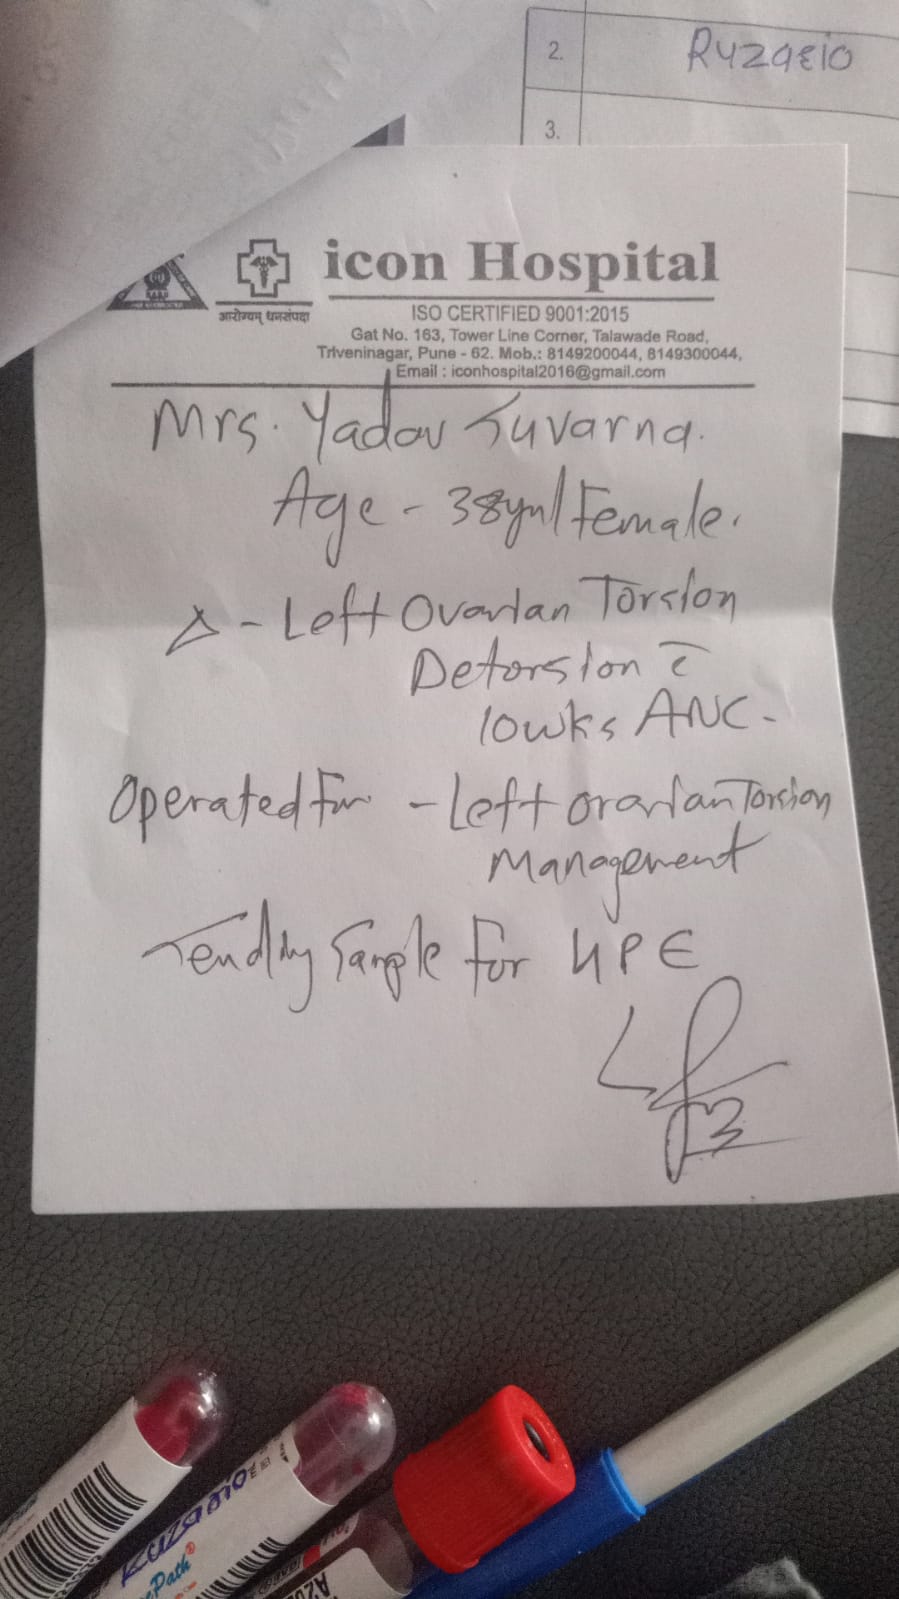 2. Ryzaeio
3.
आरोग्यम् धनसंपदा
icon Hospital
ISO CERTIFIED 9001:2015
Gat No. 163, Tower Line Corner, Talawade Road,
Triveninagar, Pune - 62. Mob.: 8149200044, 8149300044,
Email : iconhospital2016@gmail.com
Mrs. Yadav Suvarna.
Age - 38yrs/Female.
Δ - Left Ovarian Torsion
Detorsion c̄
10wks ANC -
Operated For - Left ovarian Torsion
Management
Sending Sample For HPE
Path®